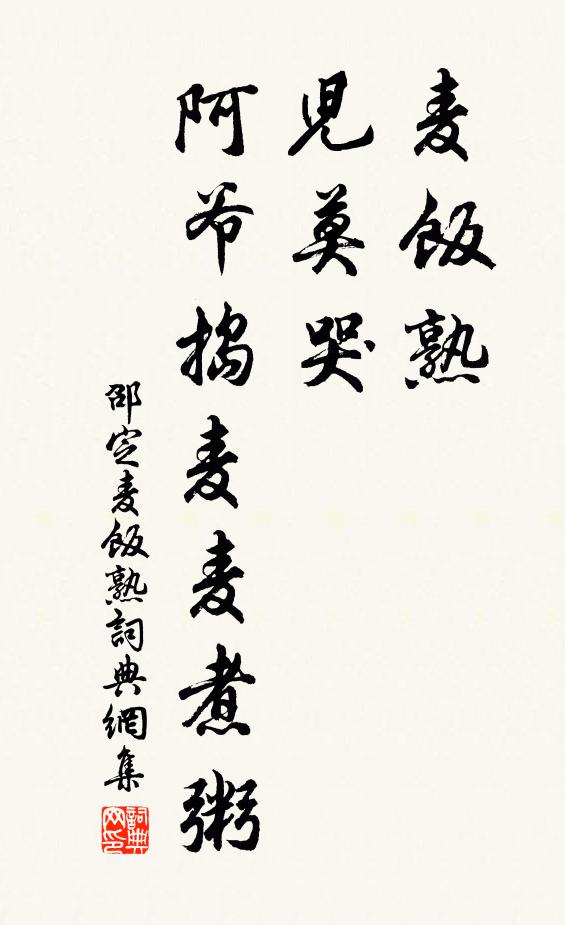 麦飯熟
児莫哭
阿爷捣麦麦煮粥
邵定麦飯熟詞典網集
詞典
网印